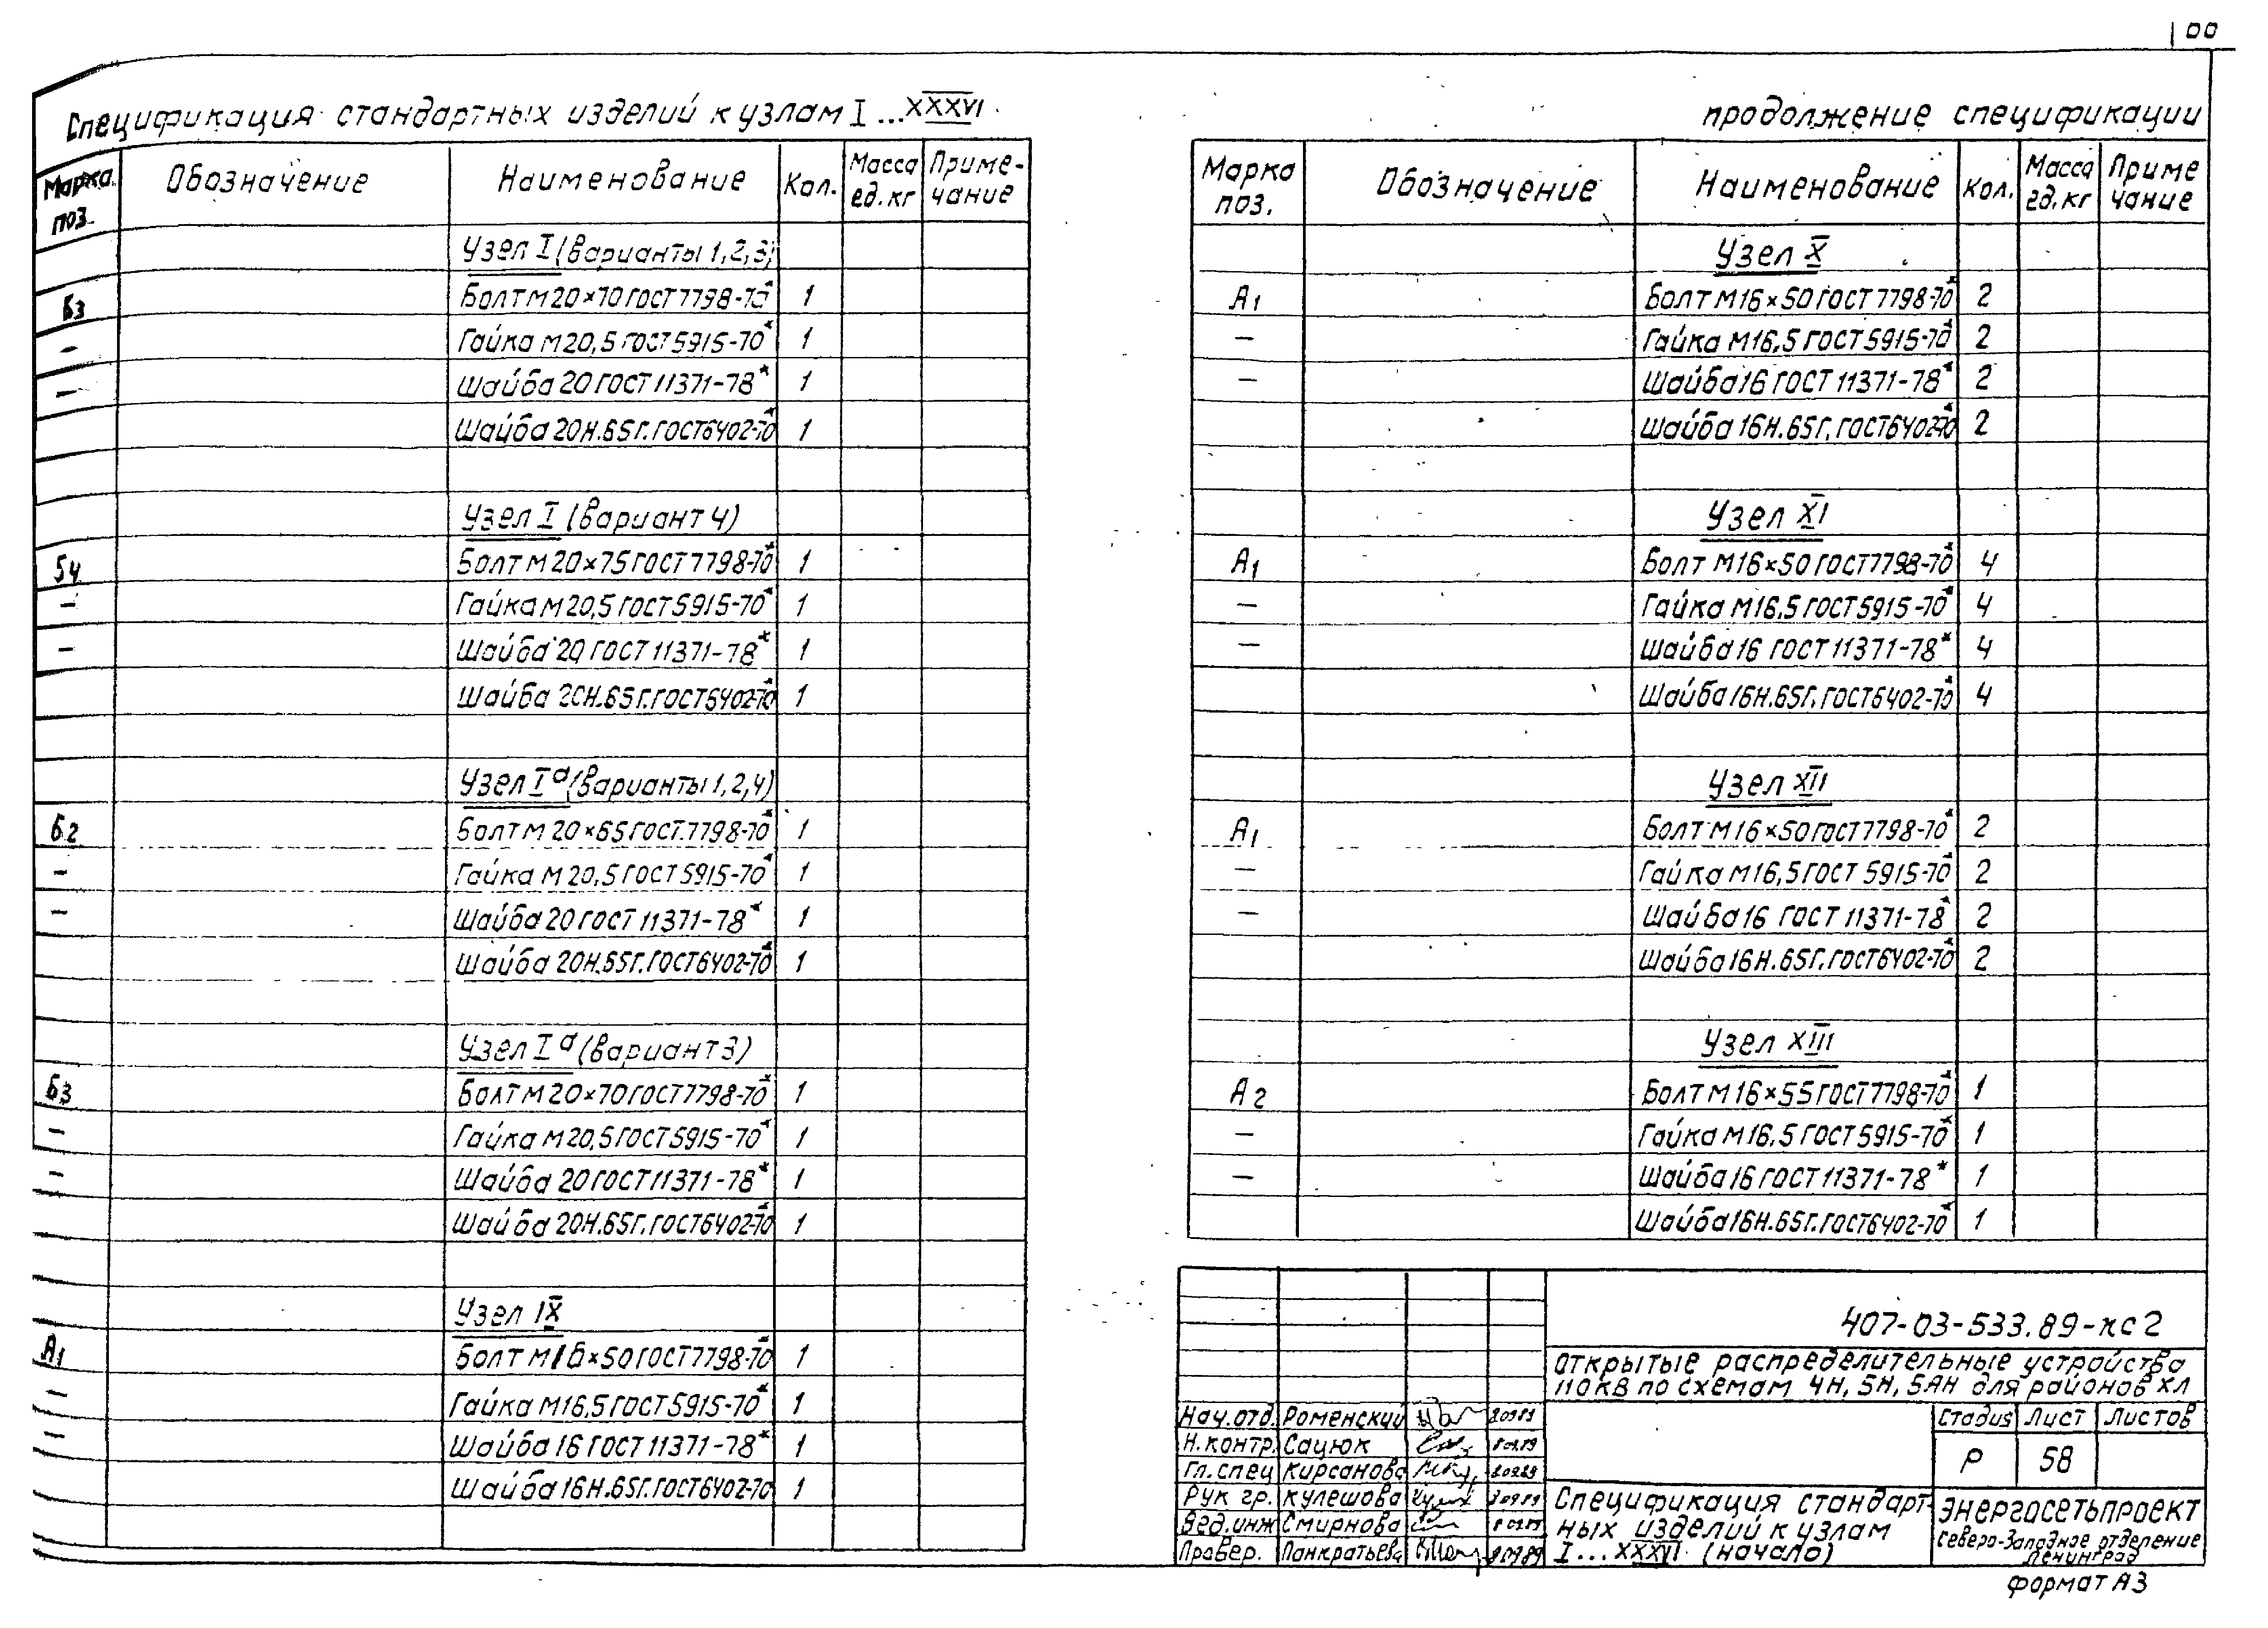 100
Спецификация стандартных изделий к узлам I...XXXVI
Марка поз. Обозначение Наименование Кол. Масса ед. кг Приме-чание
Узел I (варианты 1,2,3)
Б3 Болт М20×70 ГОСТ 7798-70* 1
– Гайка М20,5 ГОСТ 5915-70* 1
– Шайба 20 ГОСТ 11371-78* 1
Шайба 20Н.65Г. ГОСТ 6402-70* 1
Узел I (вариант 4)
Б4 Болт М20×75 ГОСТ 7798-70* 1
– Гайка М20,5 ГОСТ 5915-70* 1
– Шайба 20 ГОСТ 11371-78* 1
Шайба 20Н.65Г. ГОСТ 6402-70* 1
Узел Iа (варианты 1,2,4)
Б2 Болт М20×65 ГОСТ 7798-70* 1
– Гайка М20,5 ГОСТ 5915-70* 1
– Шайба 20 ГОСТ 11371-78* 1
Шайба 20Н.65Г. ГОСТ 6402-70* 1
Узел Iа (вариант 3)
Б3 Болт М20×70 ГОСТ 7798-70* 1
– Гайка М20,5 ГОСТ 5915-70* 1
– Шайба 20 ГОСТ 11371-78* 1
Шайба 20Н.65Г. ГОСТ 6402-70* 1
Узел IX
А1 Болт М16×50 ГОСТ 7798-70* 1
– Гайка М16,5 ГОСТ 5915-70* 1
– Шайба 16 ГОСТ 11371-78* 1
Шайба 16Н.65Г. ГОСТ 6402-70 1
продолжение спецификации
Марка поз. Обозначение Наименование Кол. Масса ед. кг Приме чание
Узел X
А1 Болт М16×50 ГОСТ 7798-70* 2
– Гайка М16,5 ГОСТ 5915-70* 2
– Шайба 16 ГОСТ 11371-78* 2
Шайба 16Н.65Г. ГОСТ 6402-70* 2
Узел XI
А1 Болт М16×50 ГОСТ 7798-70* 4
– Гайка М16,5 ГОСТ 5915-70* 4
– Шайба 16 ГОСТ 11371-78* 4
Шайба 16Н.65Г. ГОСТ 6402-70* 4
Узел XII
А1 Болт М16×50 ГОСТ 7798-70* 2
– Гайка М16,5 ГОСТ 5915-70* 2
– Шайба 16 ГОСТ 11371-78* 2
Шайба 16Н.65Г. ГОСТ 6402-70* 2
Узел XIII
А2 Болт М16×55 ГОСТ 7798-70* 1
– Гайка М16,5 ГОСТ 5915-70* 1
– Шайба 16 ГОСТ 11371-78* 1
Шайба 16Н.65Г. ГОСТ 6402-70* 1
407-03-533.89-кс2
Открытые распределительные устройства
110кВ по схемам 4Н, 5Н, 5АН для районов ХЛ
Нач.отд. Роменский
Н.контр. Сацюк
Гл.спец Кирсанова
Рук гр. Кулешова
Вед.инж Смирнова
Провер. Панкратьева
Стадия Лист Листов
Р 58
Спецификация стандарт-
ных изделий к узлам
I...XXXVI (начало)
Энергосетьпроект
Северо-Западное отделение
Ленинград
Формат А3